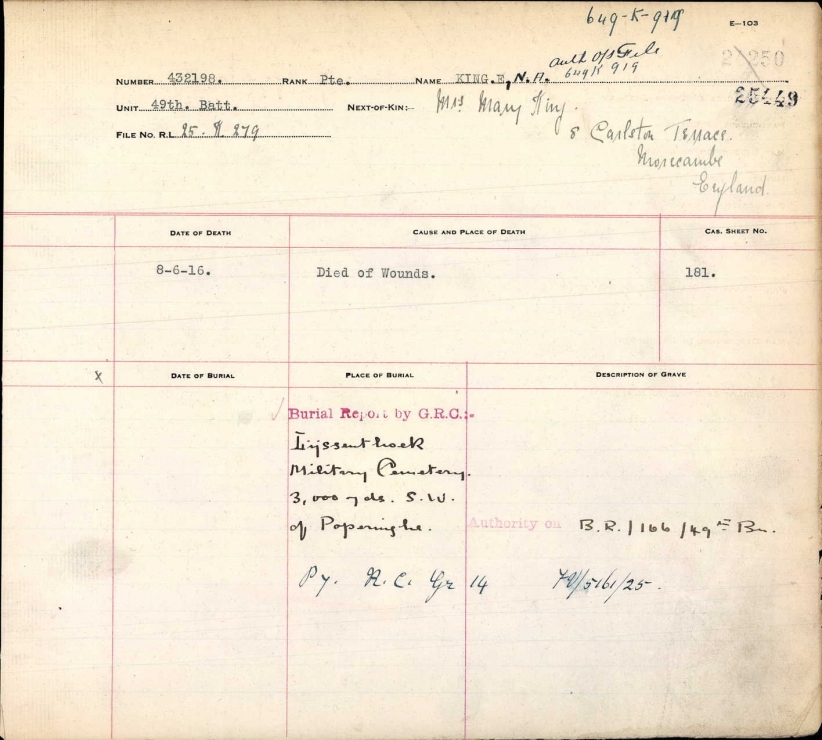 649-K-919
E-103
auth O/S File
649 K 919
25449
NUMBER 432198. RANK Pte. NAME KING.E, N.A.
UNIT 49th. Batt. NEXT-OF-KIN:- Mrs Mary King.
FILE No. R.L. 25. K. 279
8 Carlston Terrace.
Morecambe
England.
DATE OF DEATH CAUSE AND PLACE OF DEATH CAS. SHEET NO.
8-6-16. Died of Wounds. 181.
x DATE OF BURIAL PLACE OF BURIAL DESCRIPTION OF GRAVE
Burial Report by G.R.C:-
Lijssenthoek
Military Cemetery.
3,000 yds. S.W.
of Poperinghe.
Authority on B.R./166/49th Bn.
Gr 14